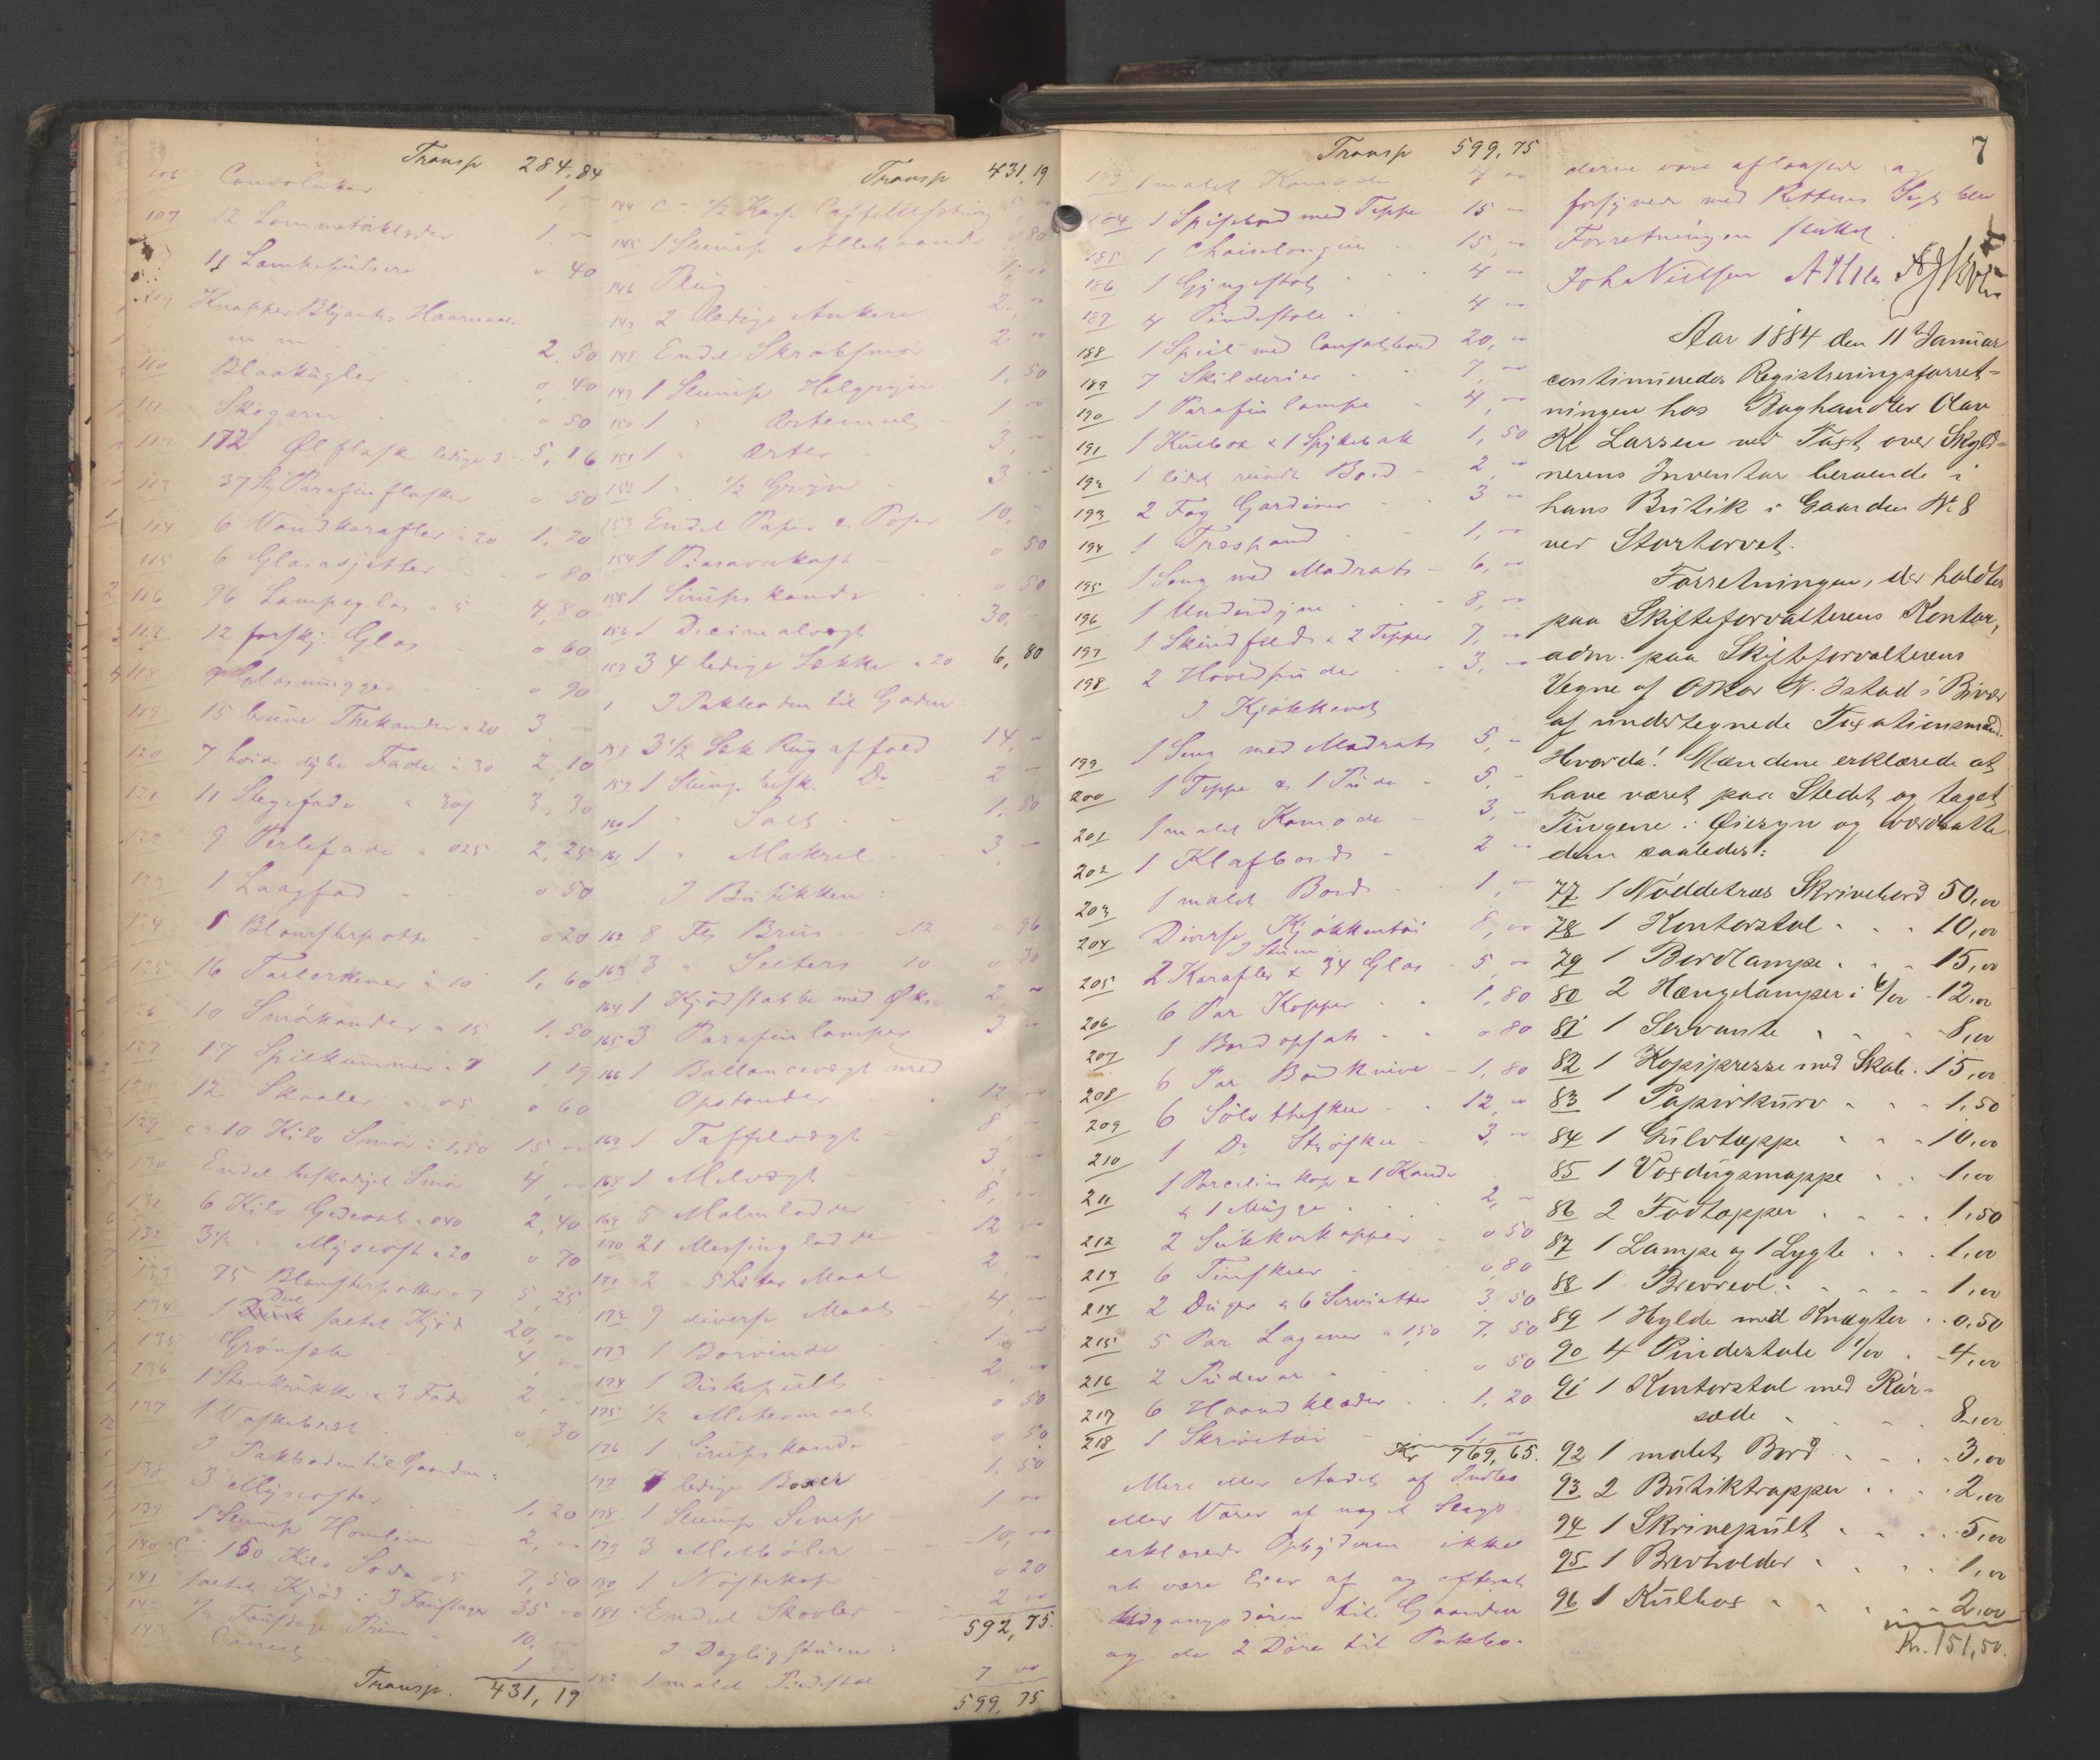 Transp 284,84
106 Convolutter 1,-
107 12 Lommetörklæder 1,-
11 Lampepudsere 0 40
109 Knapper Blyanter Haarnaale
m m 2,50
110 Blaakugler 0,40
111 Skogarn 0 50
112 172 Ølflasker ledige 3 5,16
113 37 Stk Parafinflasker 0 50
114 6 Vandkarafler à 20 1,20
115 6 Glasasjetter 0 80
116 96 Lampeglas à 5 4,80
117 12 forskj. Glas 0 60
118 9 Glasmugger 0 90
119 15 brune Thekander à 20 3,-
120 7 hvide dybe Fade à 30 2,10
121 11 Stegefade à 30 3,30
122 9 Perlefade à 025 2,25
123 1 Laagfad 0 50
124 1 Blomsterpotte 0 20
125 16 Tallerkener à 10 1,60
126 10 Smörkander à 15 1,50
127 17 Spilkummer à 7 1,19
128 12 Skaaler à 05 0 60
129 ca 10 Kilo Smör à 1,50 15,-
130 Endel beskadiget Smör 4,-
131 6 Kilo Gedeost à 040 2,40
132 3½ " Myseost à 20 0 70
133 75 Blomsterpotter à 7 5,25
134 1 Deel saltet Kjöd 20,-
135 Grönsæbe 4,-
136 1 Stenkrukke & 3 Fade 2,-
137 1 Vaskebræt 0,30
I Pakboden til Gaarden:
138 3 Myseoster 1,20
139 1 Slump Homlen 2,-
140 C 150 Kilo Soda 05 7,50
141 saltet Kjöd i 3 Foustager 35 00
142 Foustage Prim 10,-
143 Caneel 1
Transp. 431,19
Transp 431,19
144 C - ½ Kasse Caffetilsætning 5,-
145 1 Slump Allehaande 0 80
146 Rug 1,00
147 2 ledige Ankere 2,00
148 Endel Skrabsmör 2 00
149 1 Slump Helgryn 1,50
150 1 " Ertemel 1,00
151 1 " Erter 3,-
152 1 " ½ Gryn 3 -
153 Endel Papir & Poser 10,-
154 1 Piasavakost 0 50
155 1 Sirupskande 0 50
156 1 Decimalvægt 30,-
157 34 ledige Sække à 20 6,80
I Pakboden til Gaden
158 3½ Sæk Rugaffald 14,-
159 1 Slump besk. Do 2 -
160 1 " Salt 1,50
161 1 " Makrel 3,-
I Butikken:
162 8 Fl Brus 12 0 96
163 3 " Selters 10 0 30
164 1 Kjödstabbe med Økse 2,-
165 3 Parafinlamper 3 -
166 1 Ballancevægt med
Opstander 12,00
167 1 Taffelvægt 8,-
168 1 Melvægt 3,-
169 5 Malmlodder 8,00
170 21 Messinglodder 12 00
171 2 5 Liter Maal 2,00
172 9 diverse Maal 4,00
173 1 Borvinde 1,00
174 1 Diskepult 2,00
175 ½ Metermaal 0 50
176 1 Sirupskande 0 50
177 7 ledige Boxer 1,50
178 1 Slump Senep 1 00
179 3 Melböler 10,00
180 1 Nöstekop 0 20
181 Endel Skovler 2 00
592,75.
I Dagligstuen:
182 1 malet Pindestol 7 00
599,75
7
Transp 599,75
183 1 malet Komode 4 00
184 1 Spisebord med Teppe 15 -
185 1 Chaiselongue 15,00
186 1 Gyngestol 4 -
187 4 Pindestole 4 -
188 1 Speil med Consolbord 20,00
189 7 Skilderier 7,00
190 1 Parafinlampe 4,00
191 1 Kulbox & 1 Spyttebak 1,50
192 1 lidet rundt Bord 2,00
193 2 Fag Gardiner 3 00
194 1 Træspand 1,00
195 1 Seng med Madrats 6,00
196 1 Underdyne 8,00
197 1 Skindfeld & 2 Tepper 7,00
198 2 Hovedpuder 3,00
I Kjökkenet
199 1 Seng med Madrats 5,-
200 1 Teppe & 1 Pude 5,-
201 1 malet Komode 3,-
202 1 Klafbord 2 00
203 1 malet Bord 1,00
204 Diverse Kjökkentöi 8,00
I Stuen
205 2 Karafler & 34 Glas 5 00
206 6 Par Kopper 1,80
207 1 Bordopsats 0 80
208 6 Par Bordknive 1,80
209 6 Sölv Theskeer 12,00
210 1 Do Ströske 3,00
211 1 Porcelins kop & 1 Kande
& 1 Mugge 2,-
212 2 Sukkerkopper 0 50
213 6 Tinskeer 0,80
214 2 Duger & 6 Servietter 3,50
215 5 Par Lagener à 1,50 7,50
216 2 Pudevar 0 50
217 6 Haandklæder 1,20
218 1 Skrivetöi 1,00
Kr 769,65.
Mere eller Andet af Indbo
eller Varer af noget Slags
erklærede Opbyderen ikke
at være Eier af og efterat
Udgangsdören til Gaarden
og de 2 Döre til Pakbo-
derne vare aflaasede og
forsynede med Rettens Segl blev
Forretningen sluttet.
Joh. Nielsen
Aar 1884 den 11te Januar
continueredes Registreringsforret-
ningen hos Boghandler Olav
Kl Larssen med Taxt over Skyld-
nerens Inventar beroende i
hans Butik i Gaarden No 8
ved Stortorvet.
Forretningen, der holdtes
paa Skifteforvalterens Kontor,
adm. paa Skifteforvalterens
Vegne af Oskar N. Istad i Bivær
af undertegnede Taxationsmænd.
Hvorda! Mændene erklærede at
have været paa Stedet og taget
Tingene i Øiesyn og værdsatte
dem saaledes:
77 1 Nöddetræs Skrivebord 50,00
78 1 Kontorstol 10,00
79 1 Bordlampe 15,00
80 2 Hængelamper à 6/00 12,00
81 1 Servante 8,00
82 1 Kopipresse med Skab 15,00
83 1 Papirkurv 1,50
84 1 Gulvtæppe 10,00
85 1 Voxdugsmappe 1,00
86 2 Fodtæpper 1,50
87 1 Lampe og 1 Lygte 1,00
88 1 Brevreol 1,00
89 1 Hylde med Knægter 0,50
90 4 Pindestole 1/00 4,00
91 1 Kontorstol med Rör-
sæde 8,00
92 1 malet Bord 3,00
93 2 Butiktrapper 2,00
94 1 Skrivepult 5,00
95 1 Brevholder 1,00
96 1 Kulbox 2,00
Kr. 151,50.